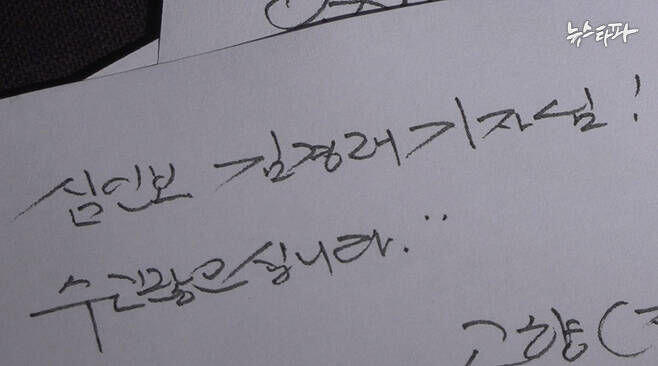 뉴스타파
심인보 김경래 기자님!
수고많으십니다..
고향(